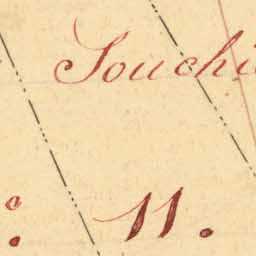 Souchi
: 11.